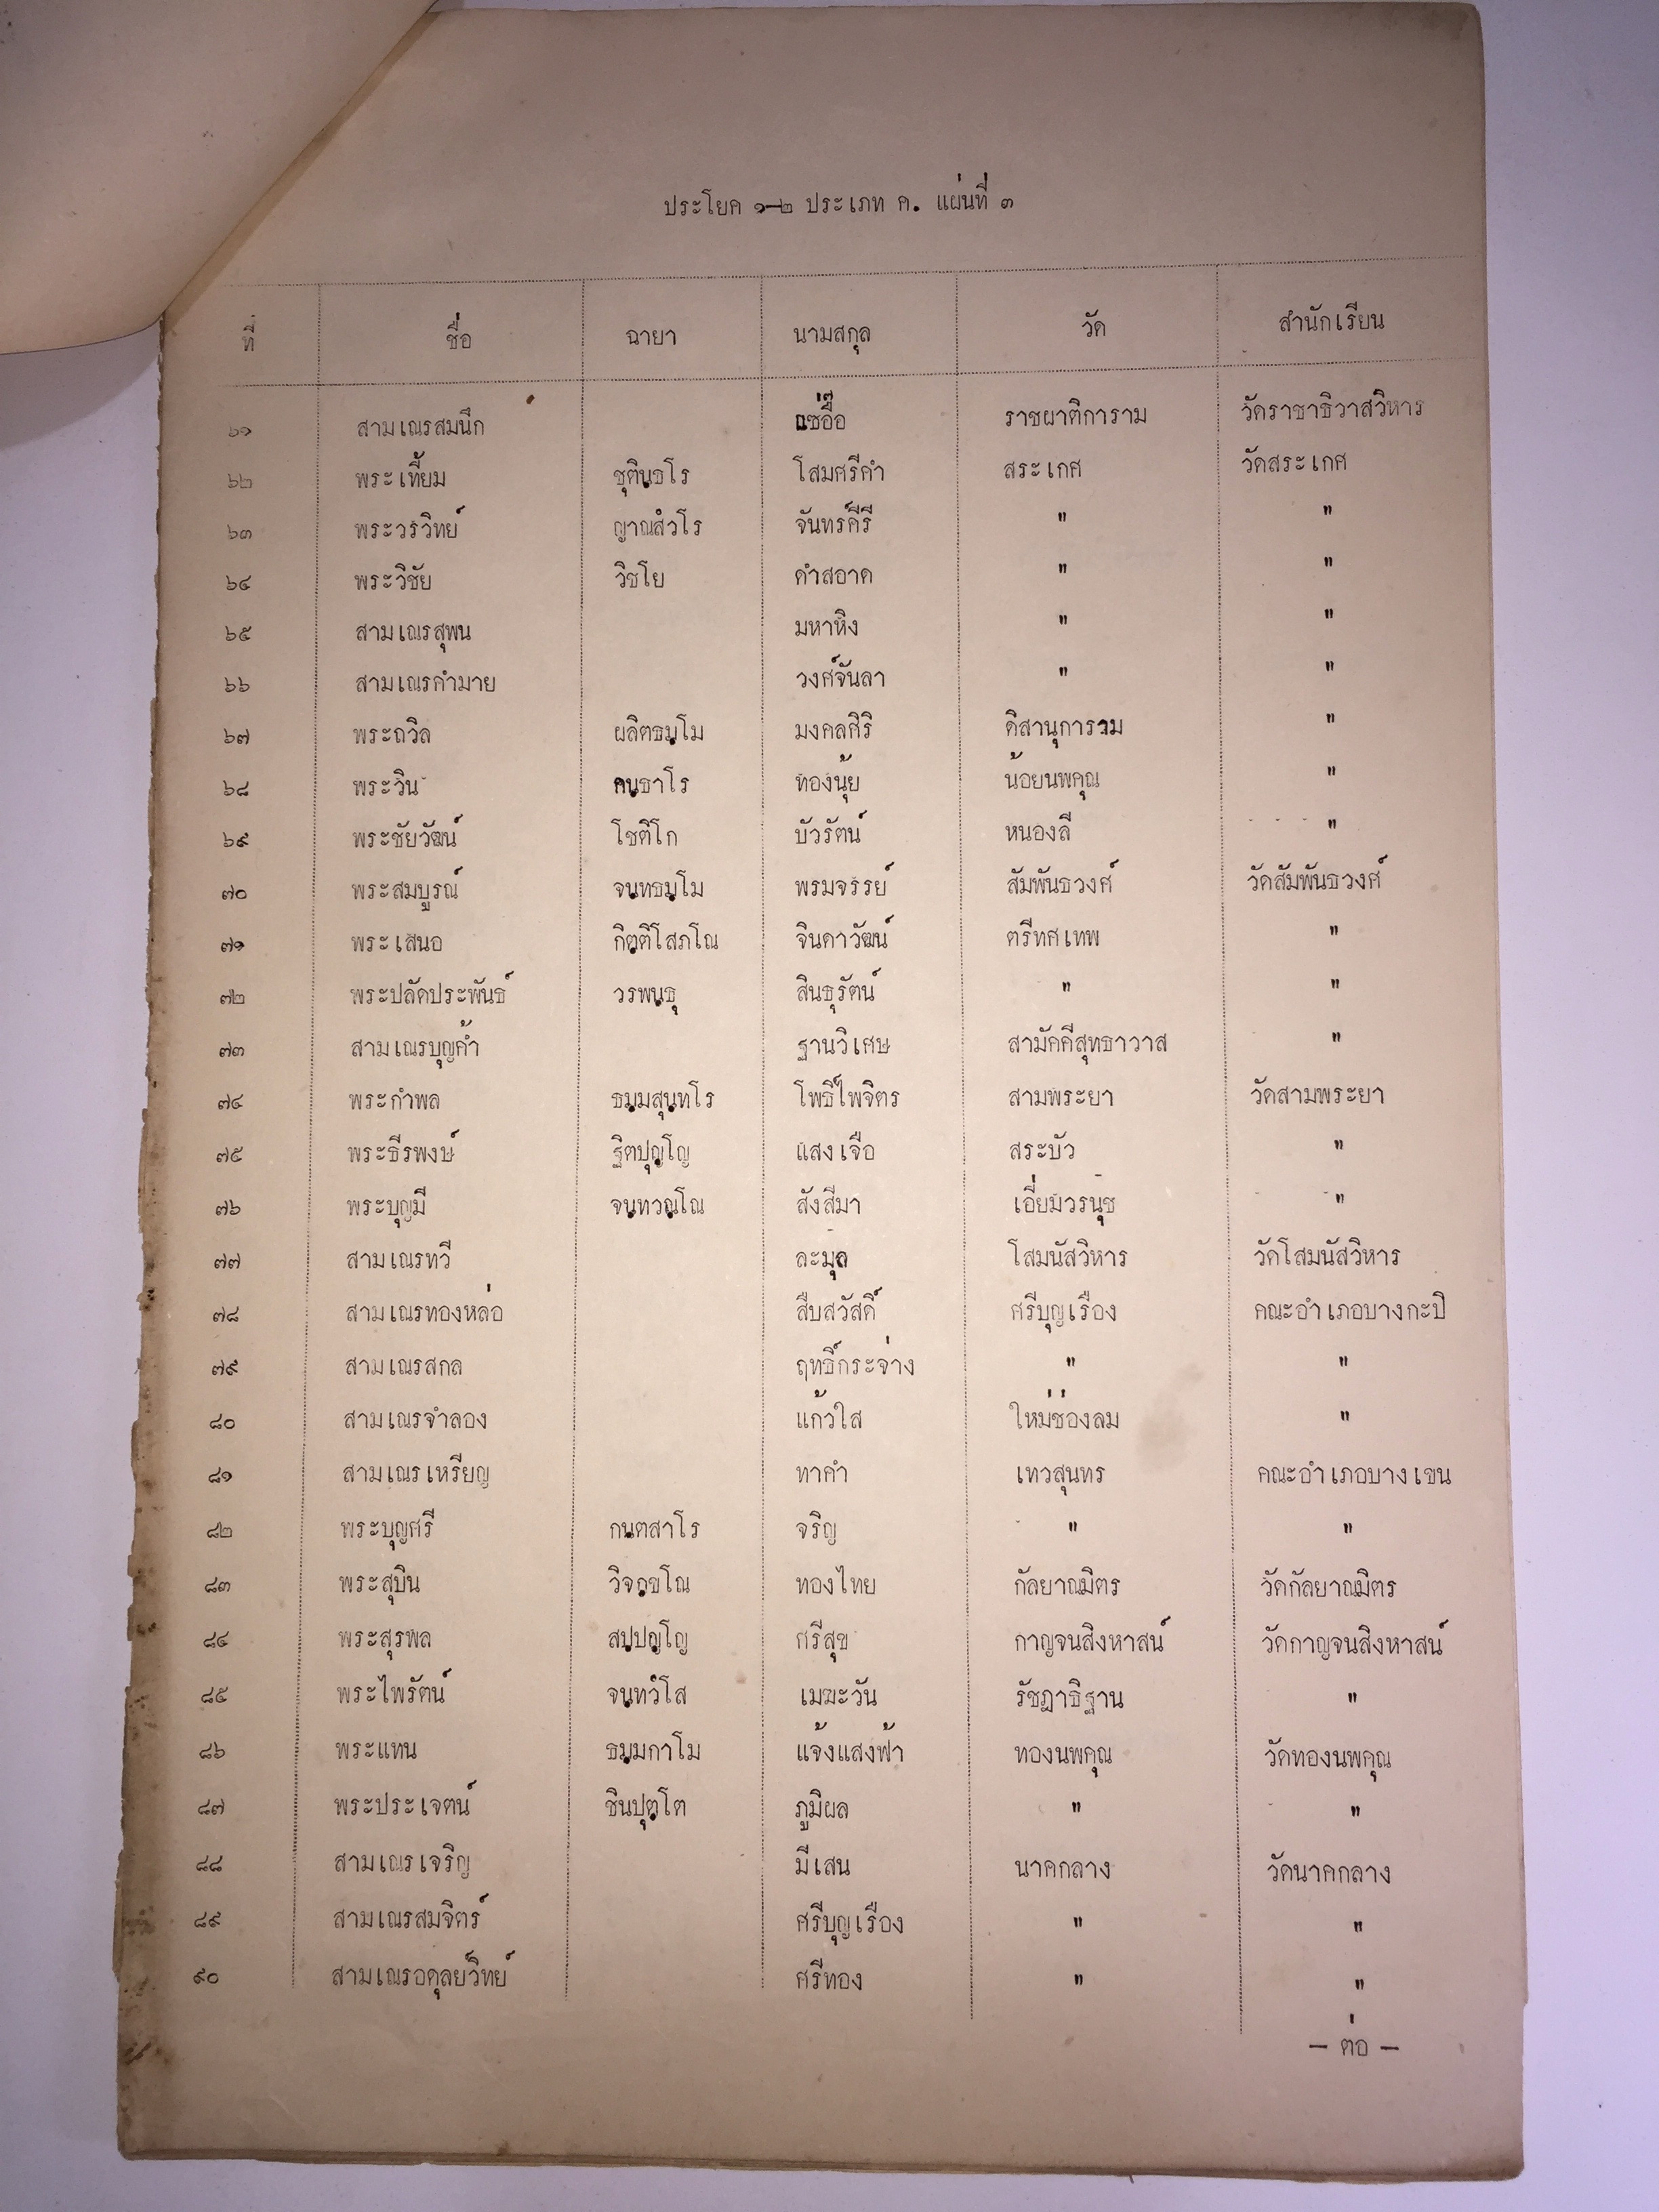 ประโยค ๑-๒ ประเภท ค. แผ่นที่ ๓
ที่ ชื่อ ฉายา นามสกุล วัด สำนักเรียน
๖๑ สามเณรสมนึก แซ่อื๊อ ราชผาติการาม วัดราชาธิวาสวิหาร
๖๒ พระเที้ยม ชุตินฺธโร โสมศรีคำ สระเกศ วัดสระเกศ
๖๓ พระวรวิทย์ ญาณสํวโร จันทร์คีรี " "
๖๔ พระวิชัย วิชโย คำสอาด " "
๖๕ สามเณรสุพน มหาหิง " "
๖๖ สามเณรกำมาย วงศ์จันลา " "
๖๗ พระถวิล ผลิตธมฺโม มงคลศิริ ดิสานุการาม "
๖๘ พระวิน คนฺธาโร ทองนุ้ย น้อยนพคุณ "
๖๙ พระชัยวัฒน์ โชติโก บัวรัตน์ หนองลี "
๗๐ พระสมบูรณ์ จนฺทธมฺโม พรมจรรย์ สัมพันธวงศ์ วัดสัมพันธวงศ์
๗๑ พระเสนอ กิตฺติโสภโณ จินดาวัฒน์ ตรีทศเทพ "
๗๒ พระปลัดประพันธ์ วรพนฺธุ สินธุรัตน์ " "
๗๓ สามเณรบุญค้ำ ฐานวิเศษ สามัคคีสุทธาวาส "
๗๔ พระกำพล ธมฺมสุนฺทโร โพธิ์ไพจิตร สามพระยา วัดสามพระยา
๗๕ พระธีรพงษ์ ฐิตปุญฺโญ แสงเจือ สระบัว "
๗๖ พระบุญมี จนฺทวณฺโณ สังสีมา เอี่ยมวรนุช "
๗๗ สามเณรทวี ละมุล โสมนัสวิหาร วัดโสมนัสวิหาร
๗๘ สามเณรทองหล่อ สืบสวัสดิ์ ศรีบุญเรือง คณะอำเภอบางกะปิ
๗๙ สามเณรสกล ฤทธิ์กระจ่าง " "
๘๐ สามเณรจำลอง แก้วใส ใหม่ช่องลม "
๘๑ สามเณรเหรียญ ทาคำ เทวสุนทร คณะอำเภอบางเขน
๘๒ พระบุญศรี กนฺตสาโร จริญ " "
๘๓ พระสุบิน วิจกฺขโณ ทองไทย กัลยาณมิตร วัดกัลยาณมิตร
๘๔ พระสุรพล สปฺปญฺโญ ศรีสุข กาญจนสิงหาสน์ วัดกาญจนสิงหาสน์
๘๕ พระไพรัตน์ จนฺทวํโส เมฆะวัน รัชฎาธิฐาน "
๘๖ พระแทน ธมฺมกาโม แจ้งแสงฟ้า ทองนพคุณ วัดทองนพคุณ
๘๗ พระประเจตน์ ชินปุตฺโต ภูมิผล " "
๘๘ สามเณรเจริญ มีเสน นาคกลาง วัดนาคกลาง
๘๙ สามเณรสมจิตร์ ศรีบุญเรือง " "
๙๐ สามเณรอดุลย์วิทย์ ศรีทอง " "
- ต่อ -